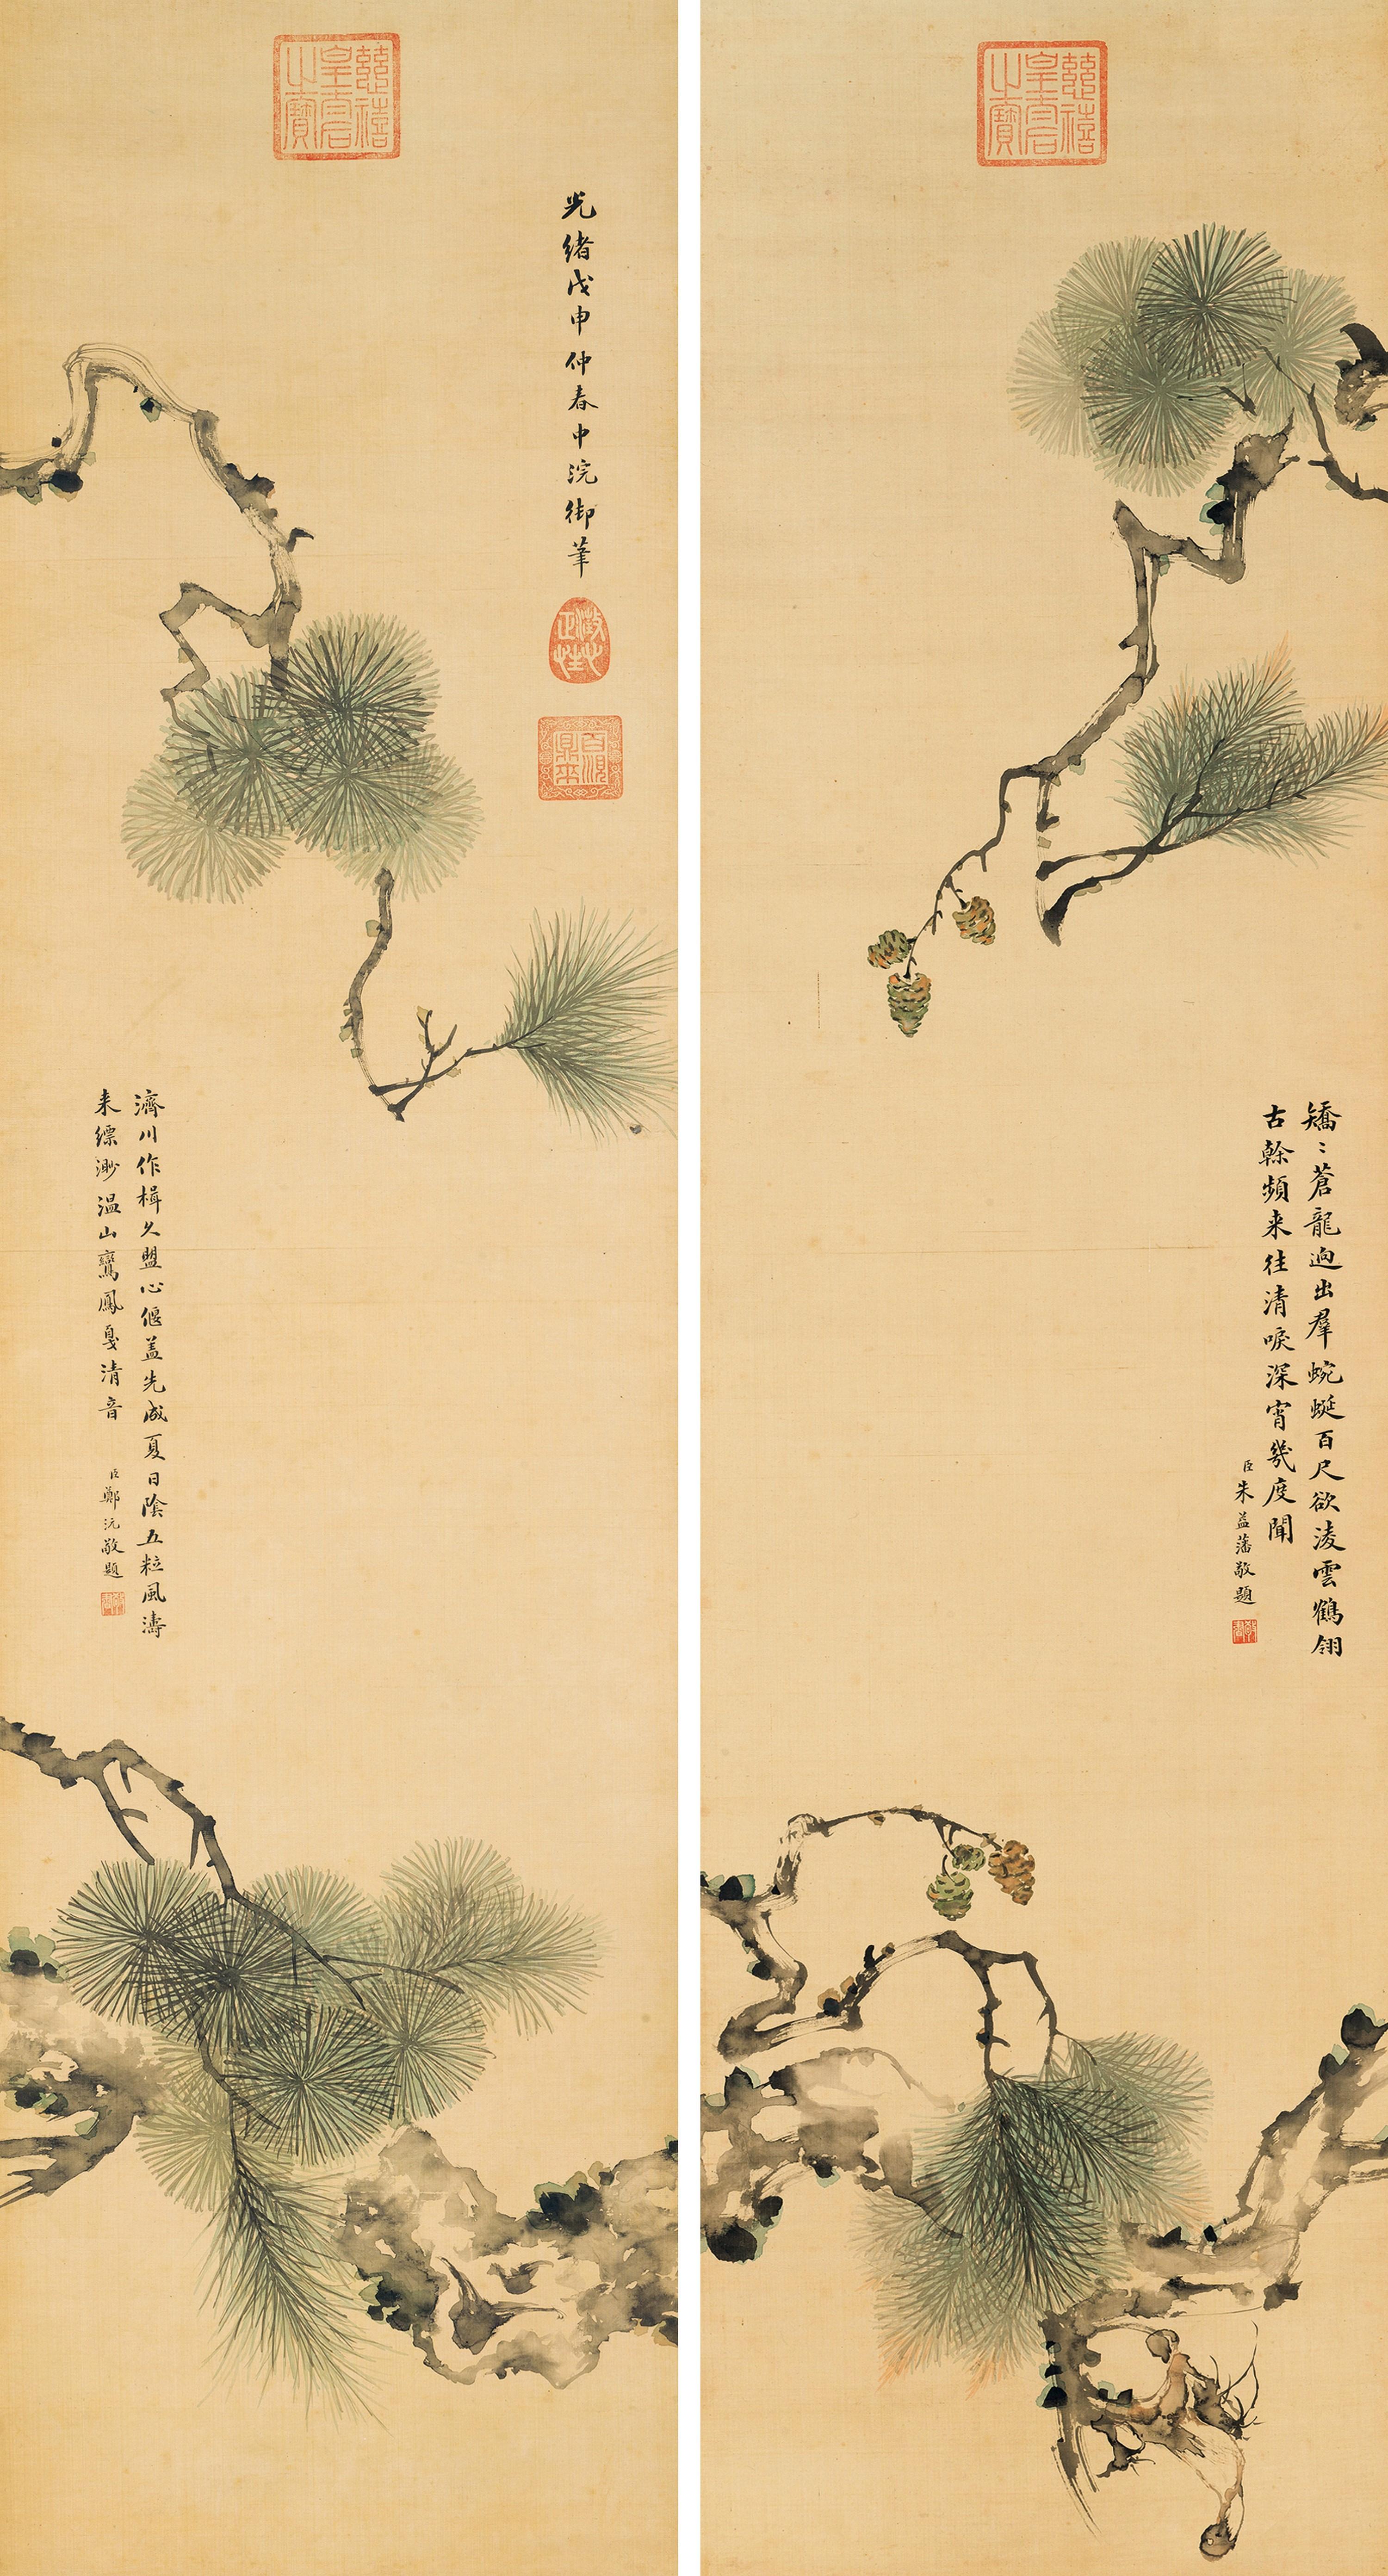 慈禧
皇后
之寶
光緒戊申仲春中浣御筆
澂心
正性
百順
鼎來
濟川作楫久盟心偃蓋先成夏日陰五粒風濤
来縹渺温山鸞鳳戛清音
臣鄭沅敬題
慈禧
皇后
之寶
矯〻蒼龍迥出羣蜿蜒百尺欲淩雲鶴翎
古榦頻来往清唳深宵幾度聞
臣朱益藩敬題